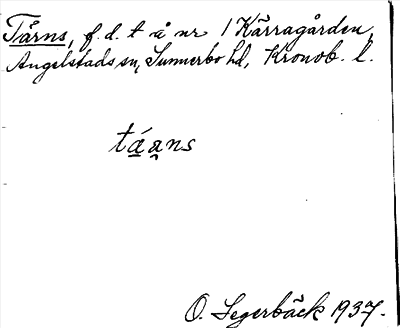 Tärns, f.d. t å nr 1 Kärragården,
Angelstads sn, Sunnerbo hd, Kronob. l.
tá̱a̯ns
O. Segerbäck 1937.